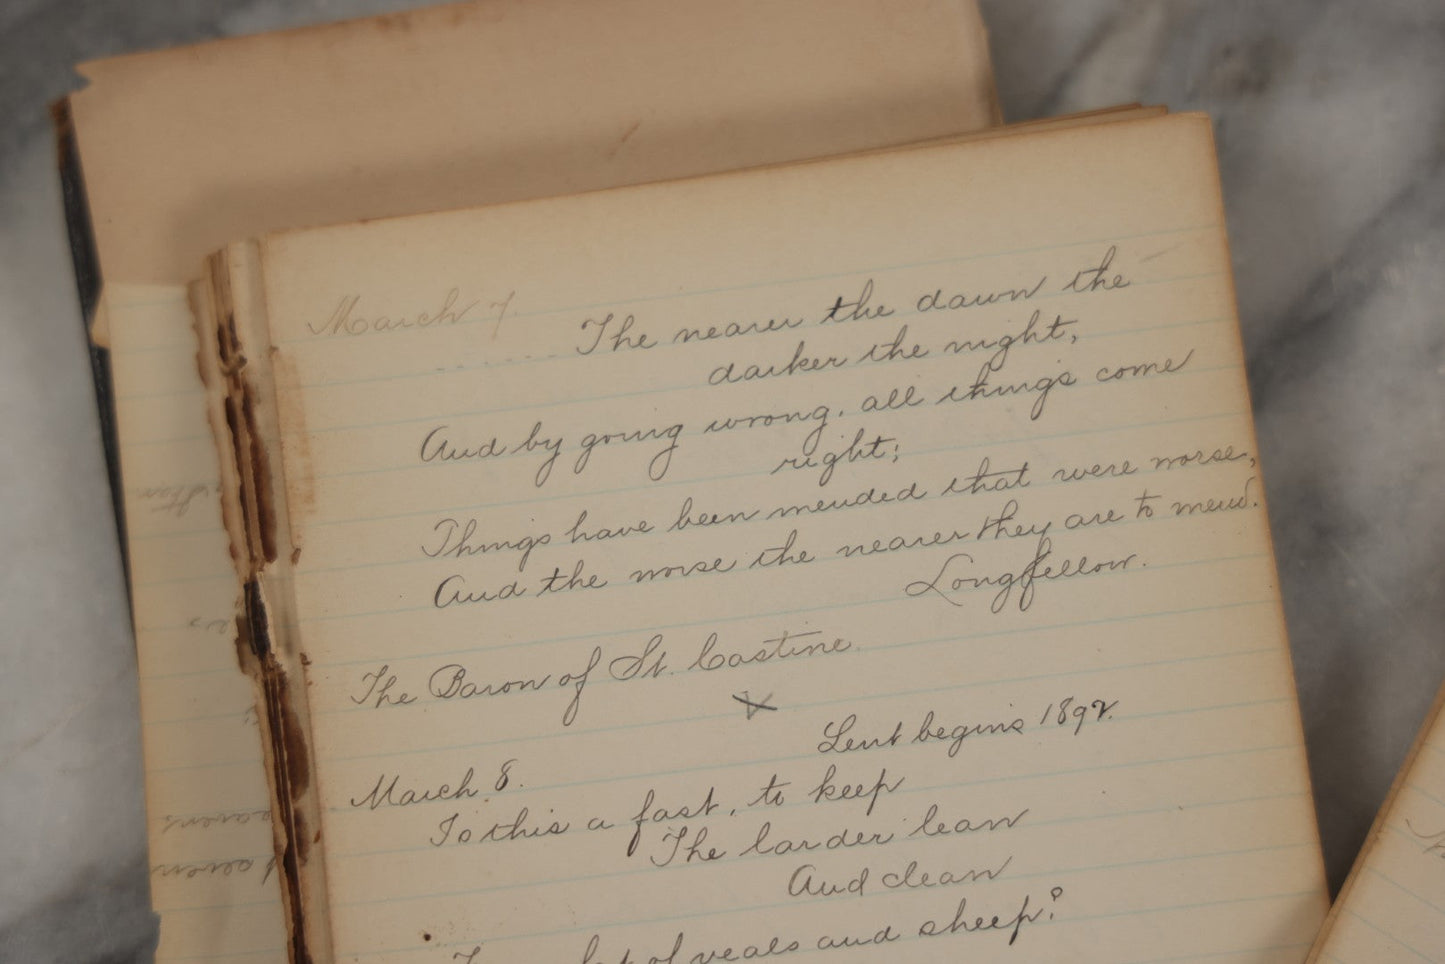 March 7.
The nearer the dawn the
darker the night,
And by going wrong, all things come
right;
Things have been mended that were worse,
And the worse the nearer they are to mend.
Longfellow.
The Baron of St. Castine.
Lent begins 1892.
March 8.
Is this a fast, to keep
The larder lean
And clean
of veals and sheep?